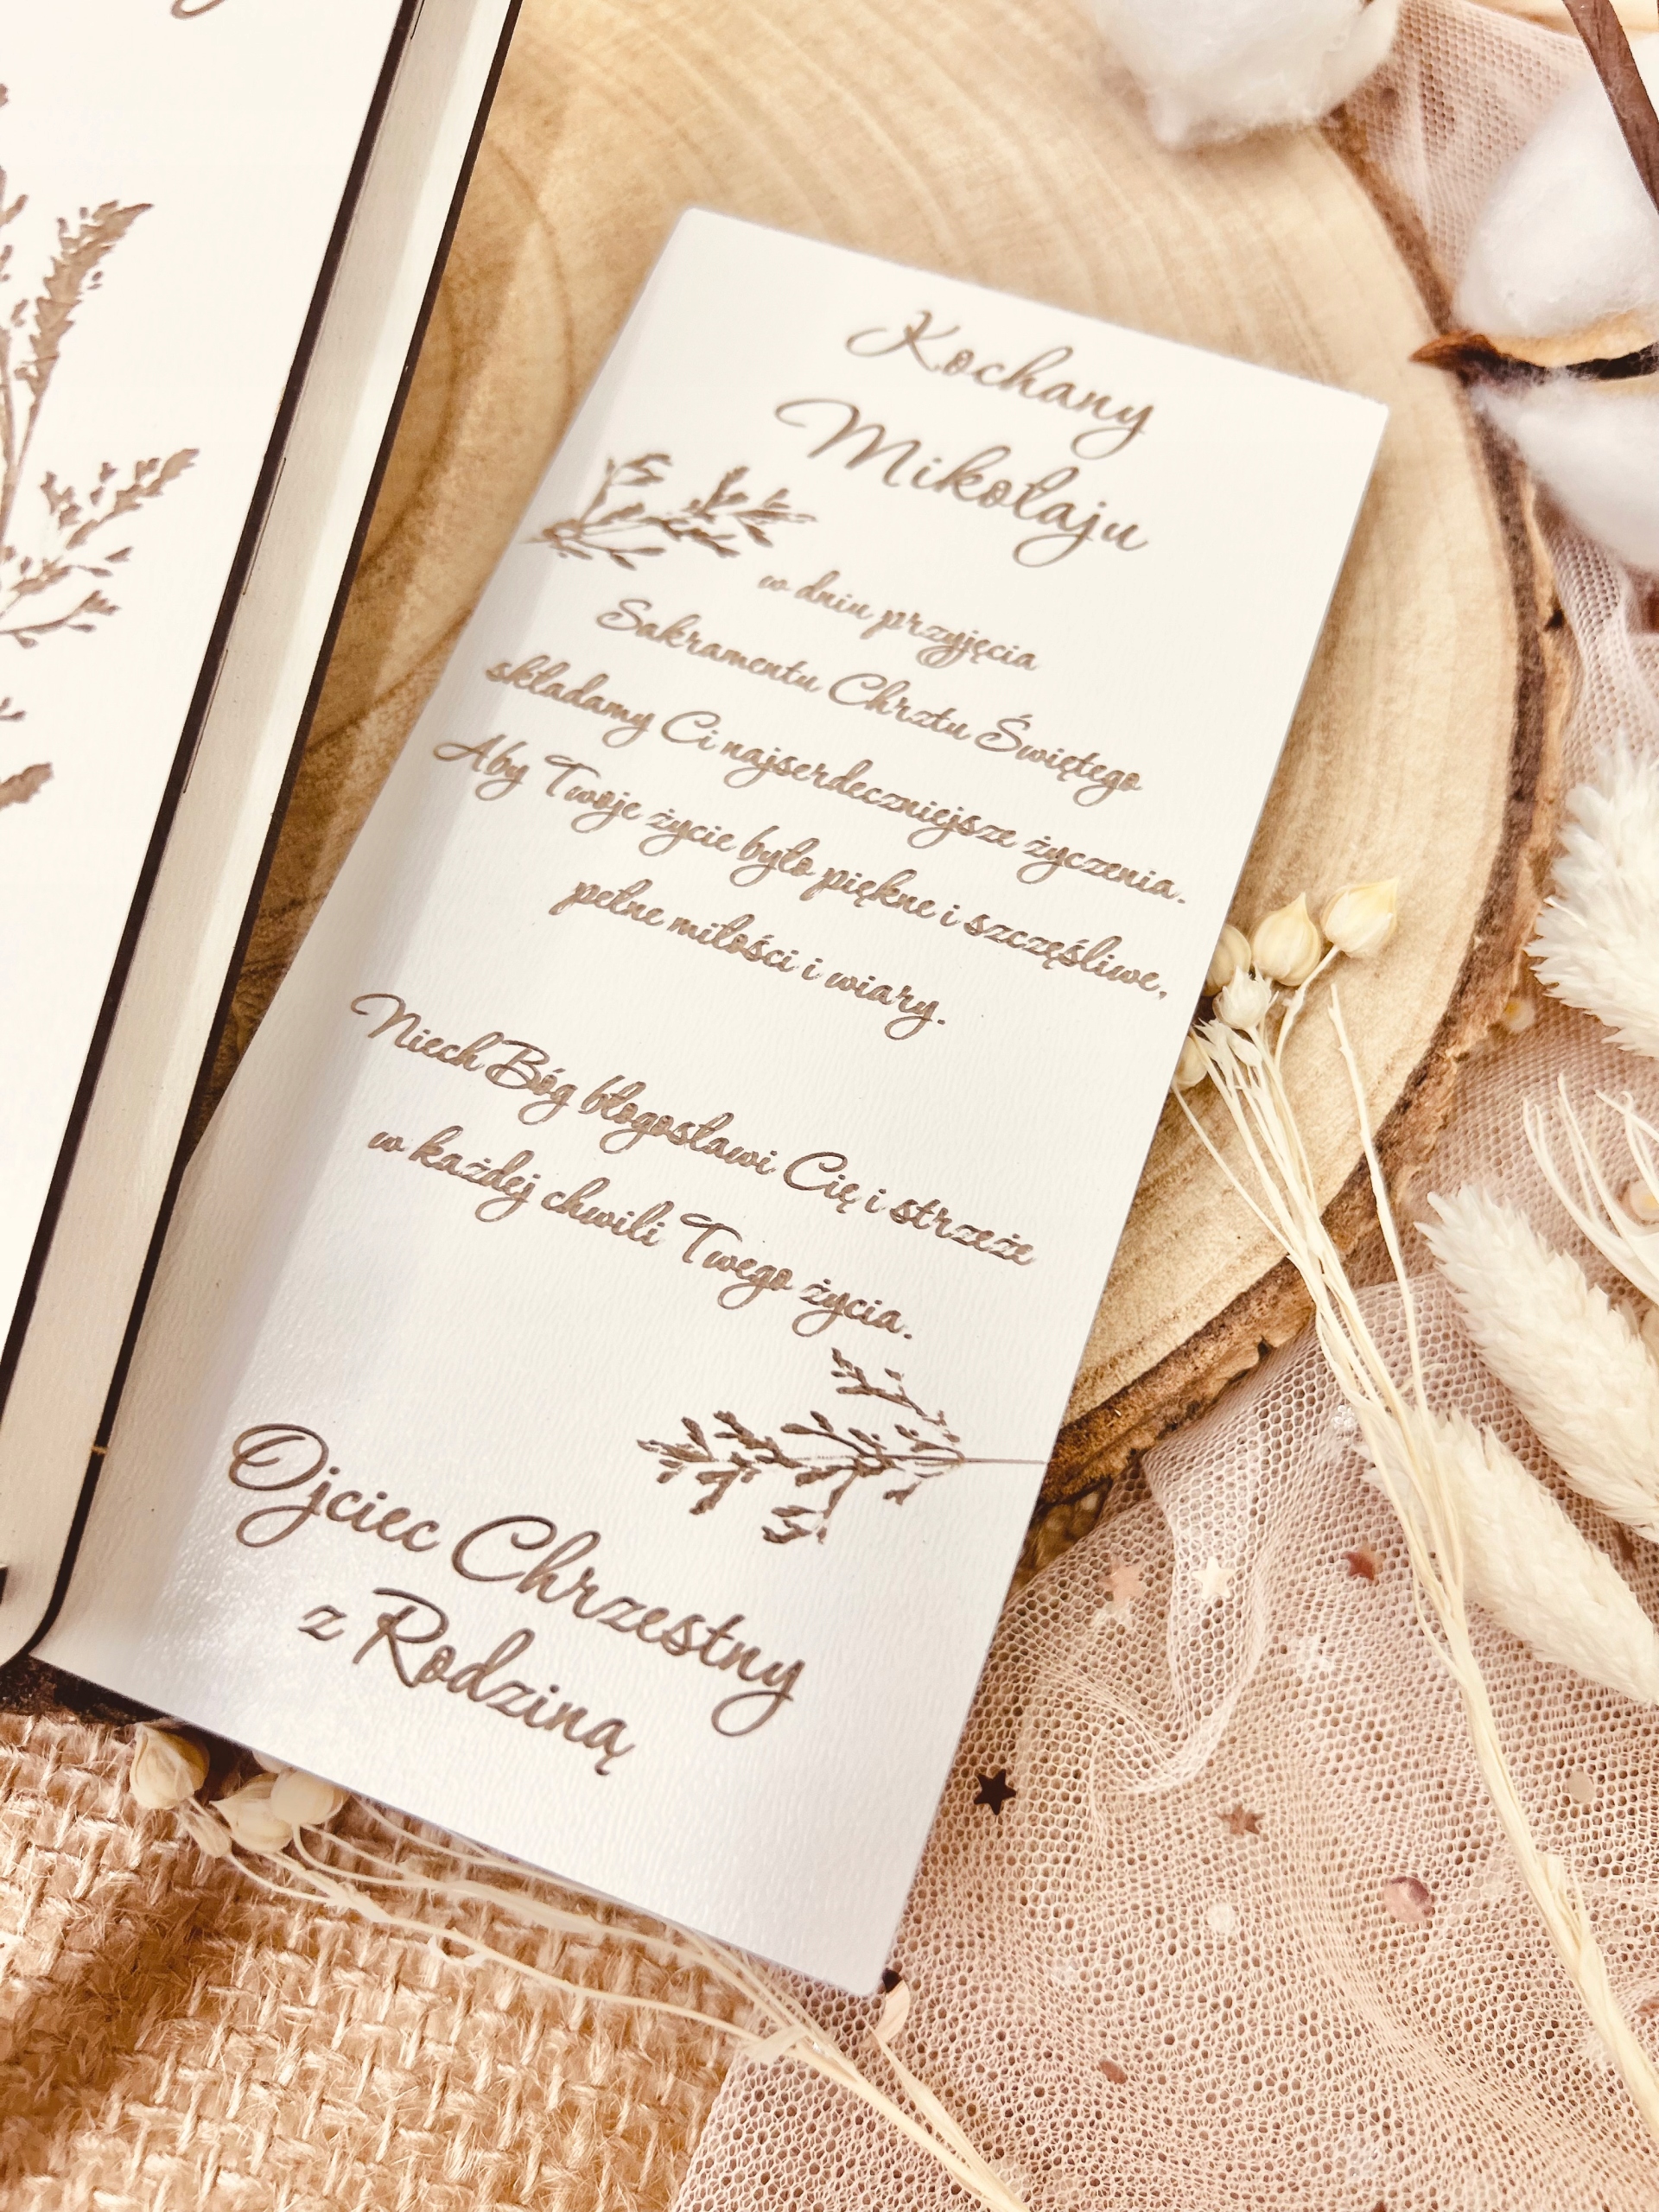 Kochany
Mikołaju
w dniu przyjęcia
Sakramentu Chrztu Świętego
składamy Ci najserdeczniejsze życzenia.
Aby Twoje życie było piękne i szczęśliwe,
pełne miłości i wiary.
Niech Bóg błogosławi Cię i strzeże
w każdej chwili Twego życia.
Ojciec Chrzestny
z Rodziną